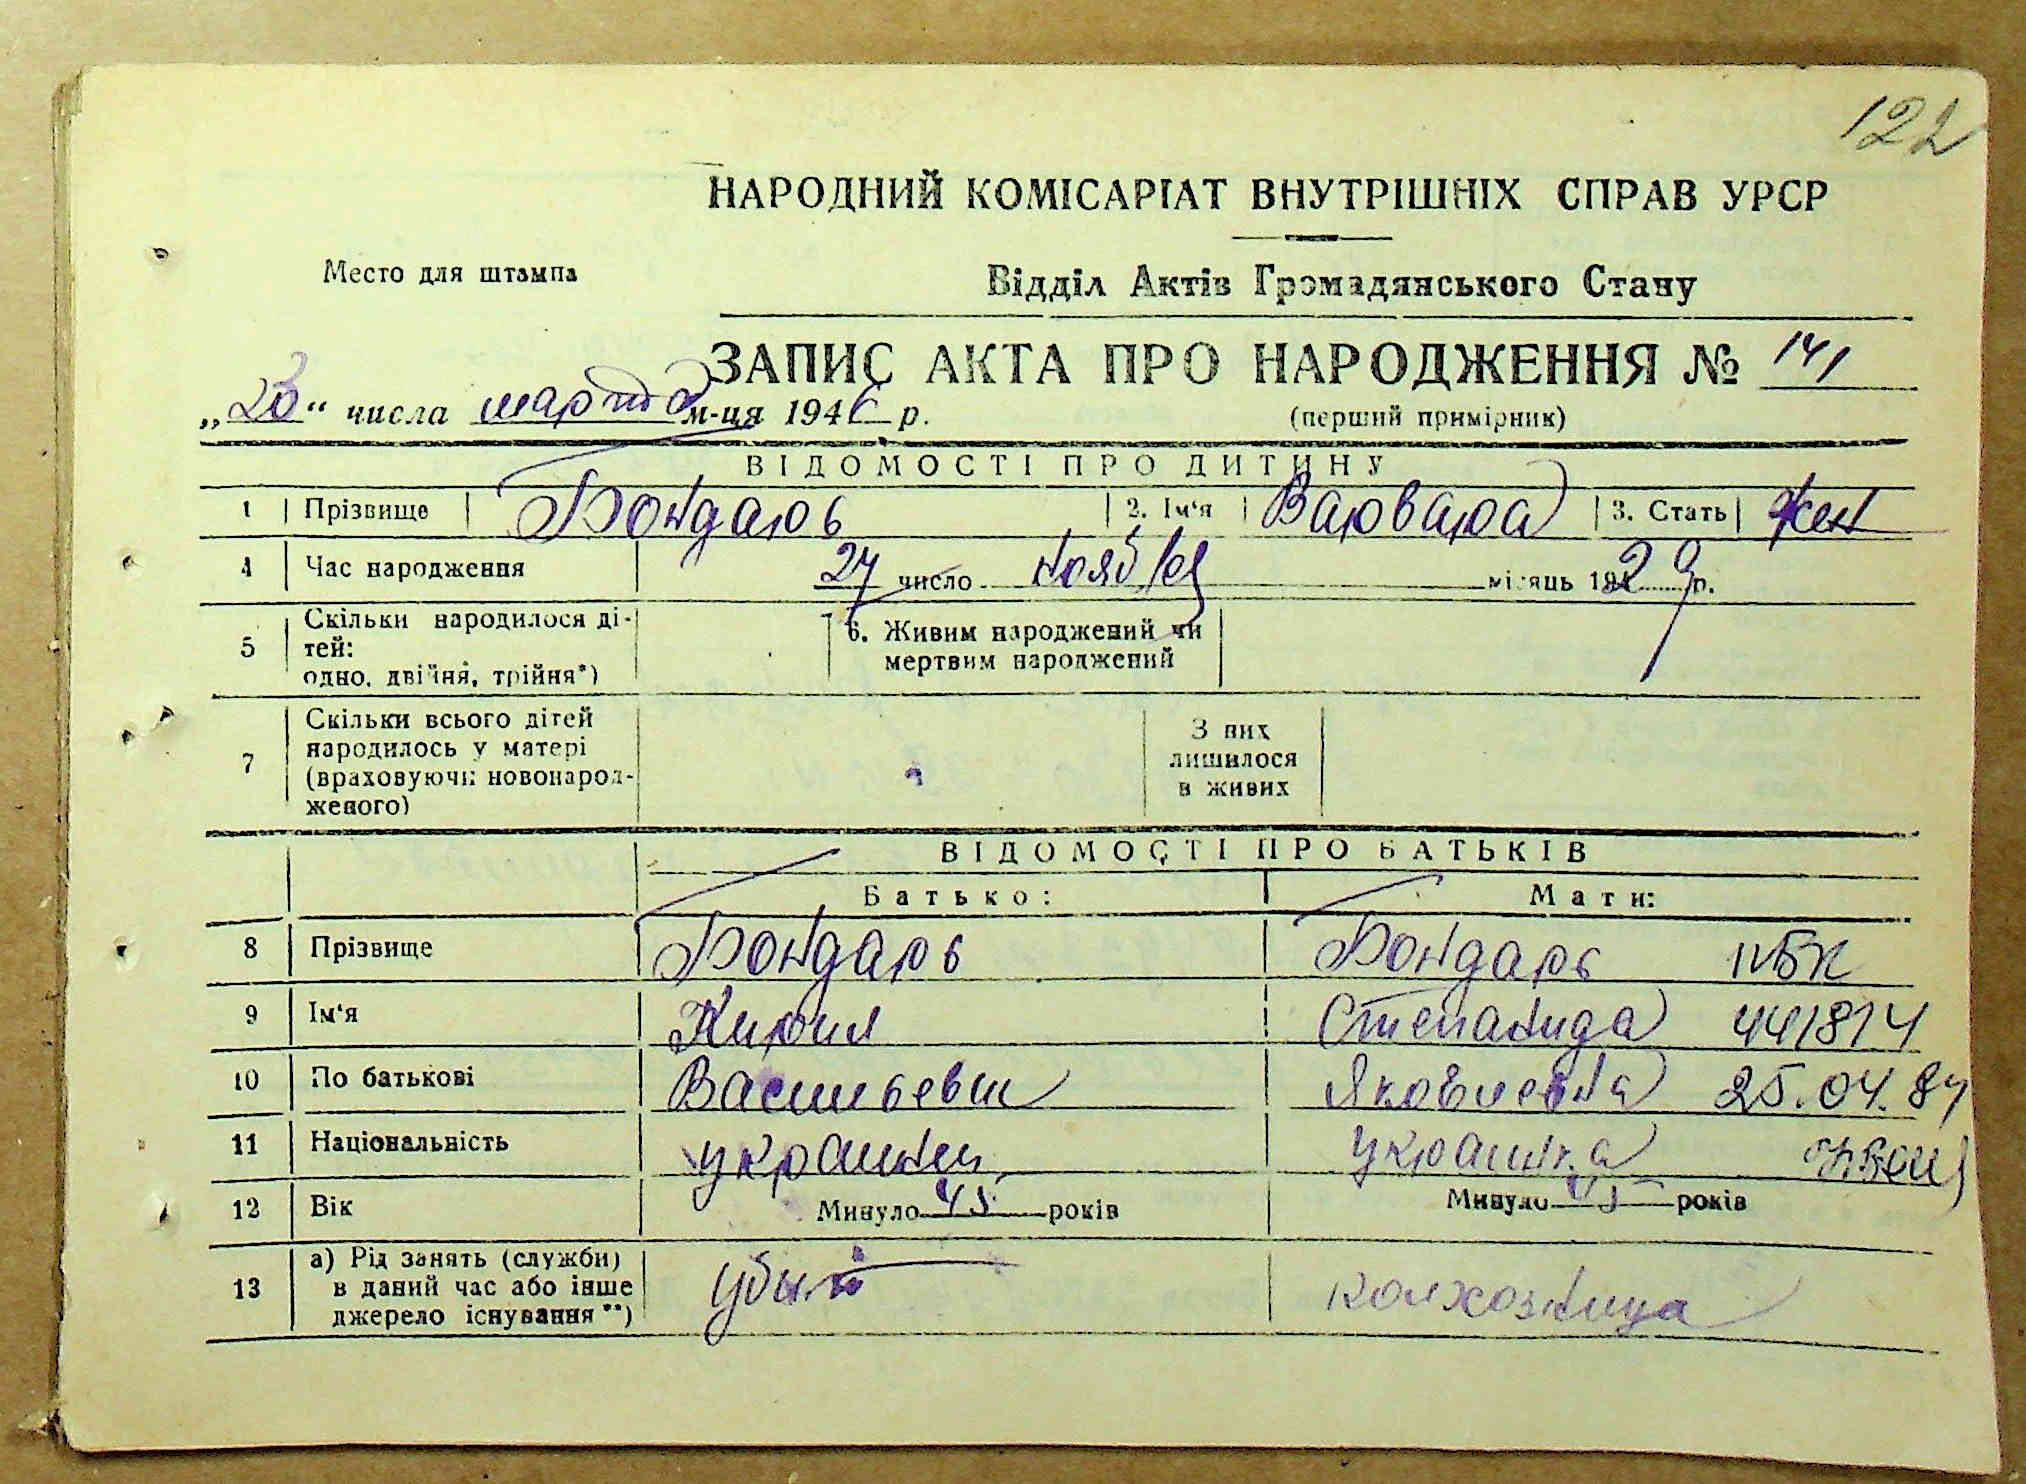 122
НАРОДНИЙ КОМІСАРІАТ ВНУТРІШНІХ СПРАВ УРСР
Место для штампа
Відділ Актів Громадянського Стану
ЗАПИС АКТА ПРО НАРОДЖЕННЯ № 141
„23“ числа марта м-ця 1946 р.
(перший примірник)
ВІДОМОСТІ ПРО ДИТИНУ
1 Прізвище Бондарь 2. Ім‘я Варвара 3. Стать жен
4 Час народження 27 число ноября місяць 1929 р.
5 Скільки народилося ді-
тей:
одно, двійня, трійня*)
6. Живим народжений чи
мертвим народжений
7 Скільки всього дітей
народилось у матері
(враховуючи новонарод-
женого)
З них
лишилося
в живих
ВІДОМОСТІ ПРО БАТЬКІВ
Батько: Мати:
8 Прізвище Бондарь Бондарь
9 Ім‘я Кирил Степанида 441814
10 По батькові Васильевич Яковлевна 25.04.84
11 Національність украинец украинка
12 Вік Минуло 45 років Минуло 45 років
13 а) Рід занять (служби)
в даний час або інше
джерело існування**)
убит колхозница